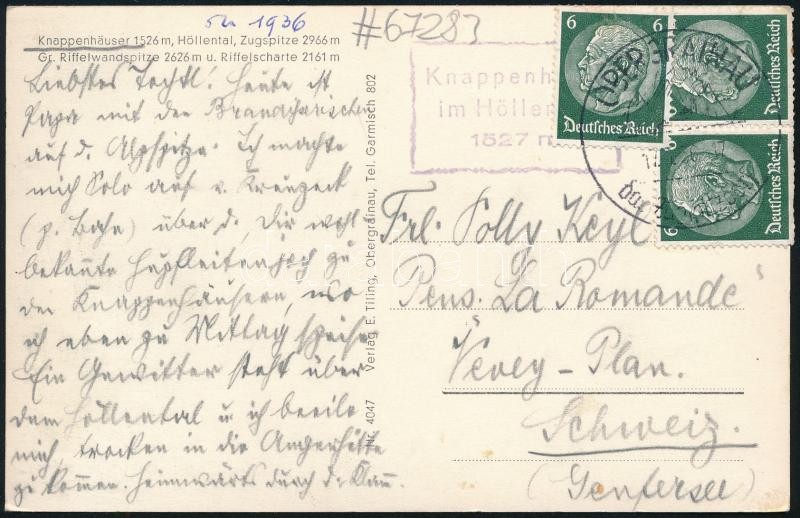 ou 1936
#67283
Knappenhäuser 1526 m, Höllental, Zugspitze 2966 m
Gr. Riffelwandspitze 2626 m u. Riffelscharte 2161 m
Liebstes Tochtl! Heute ist
Papa mit den
auf d. Alpspitze. Ich machte
mich Solo auf v. Kreuzeck
(p. Bahn) über d. Dir wohl
bekannte Hupfleitenjoch zu
den Knappenhäusern, wo
ich eben zu Mittag speise.
Ein Gewitter steht über
dem Höllental u. ich beeile
mich, trocken in die Angerhütte
zu kommen. Heimwärts durch d. Klamm.
Nr. 4047 Verlag E. Tiling, Obergrainau, Tel. Garmisch 802
Knappenh
im Höllen
1527 m
6 6
Deutsches Reich
6
Deutsches Reich
6
OBERGRAINAU
Frl. Polly Keyl
Pens. "La Romande"
Vevey – Plan.
Schweiz.
(Genfersee)